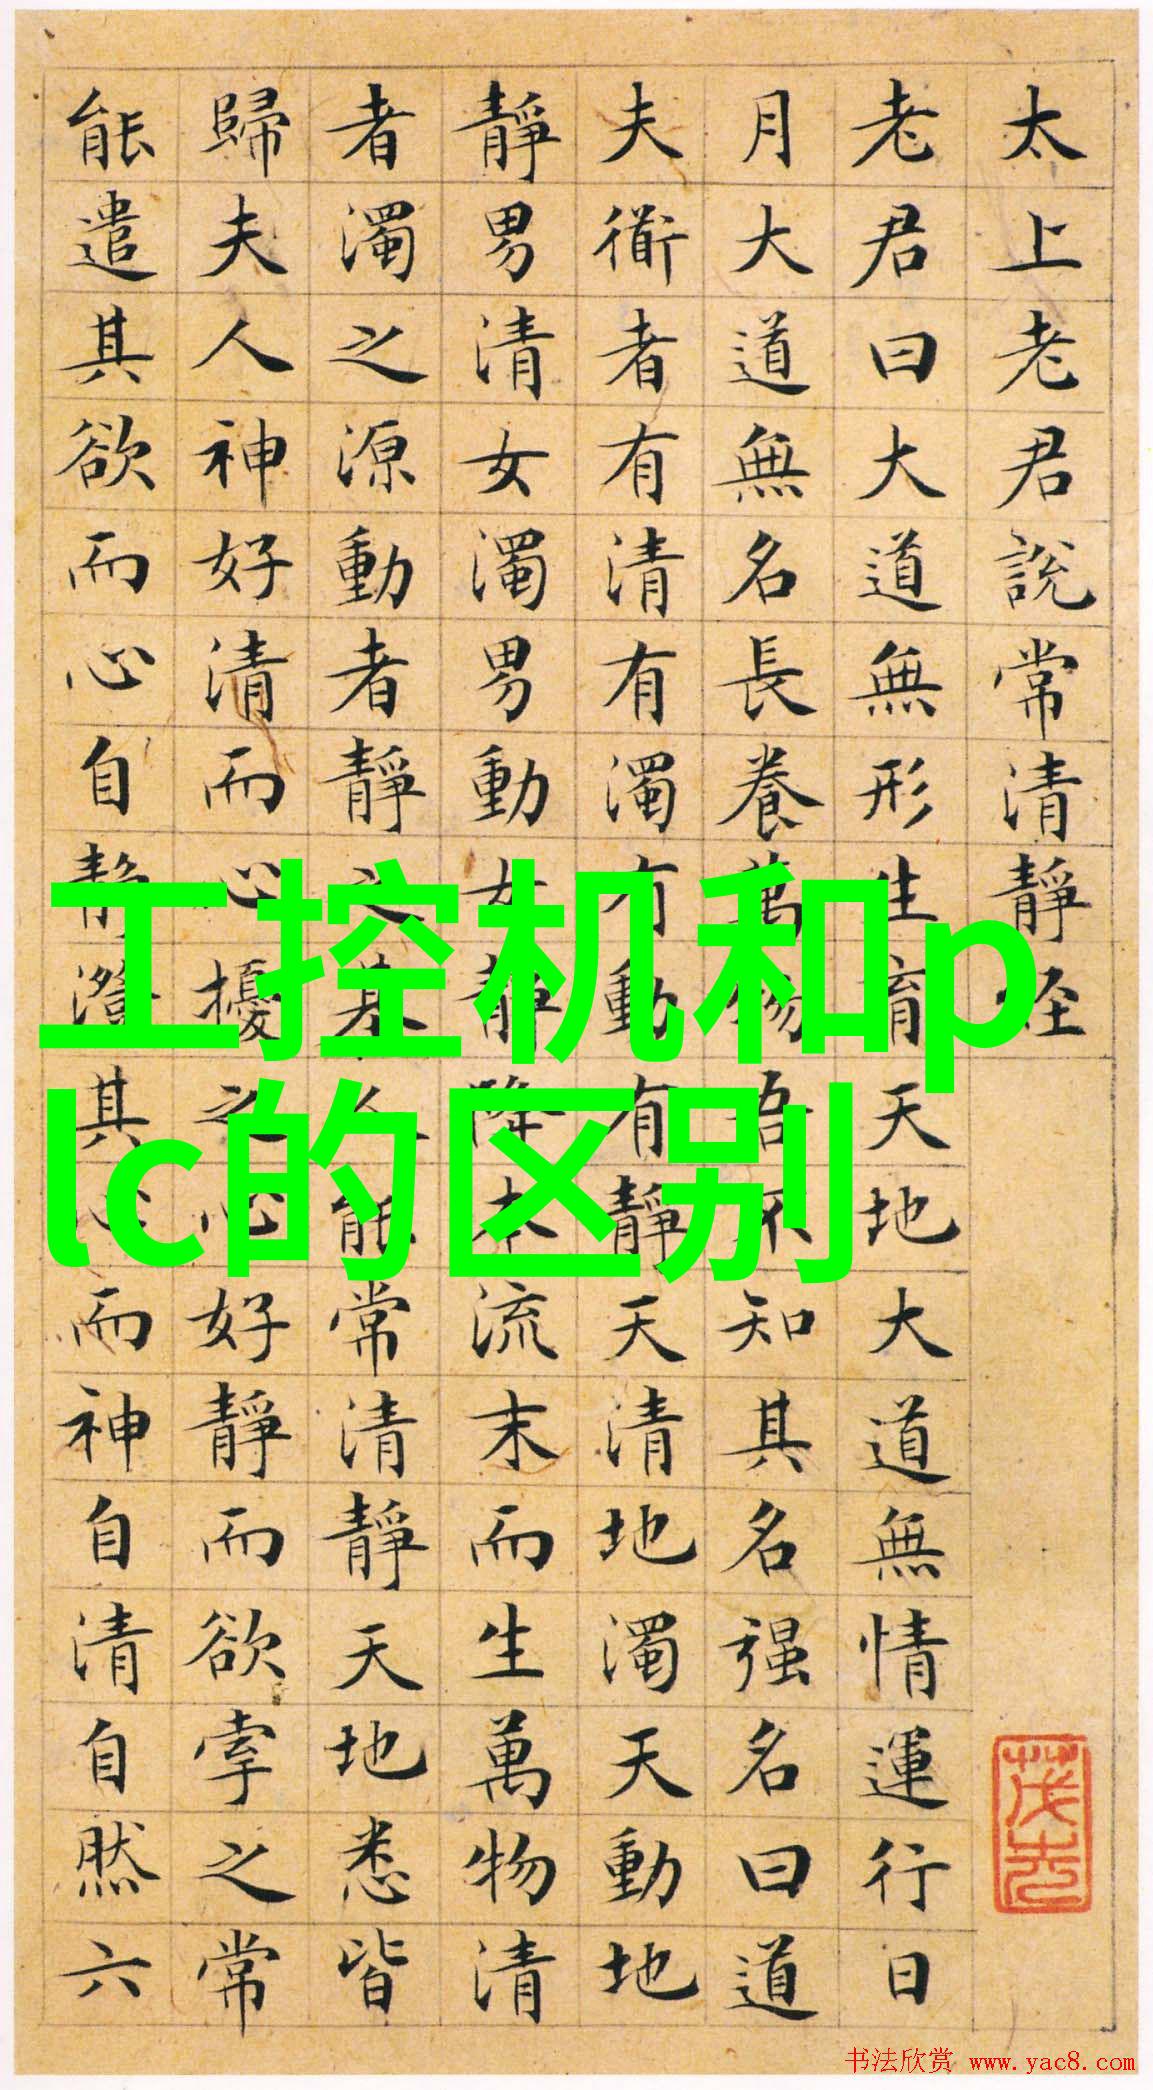 太上老君說常清靜經
老君曰大道無形生育天地大道無情運行日
月大道無名長養萬物吾不知其名强名曰道
夫衜者有清有濁有動有靜天清地濁天動地
靜男清女濁男動女靜降本流末而生萬物清
者濁之源動者靜之基人能常清靜天地悉皆
歸夫人神好清而心擾之心好靜而欲牽之常
能遣其欲而心自靜澄其心而神自清自然六
工控机和p
lc的区别
书法欣赏 www.yac8.com